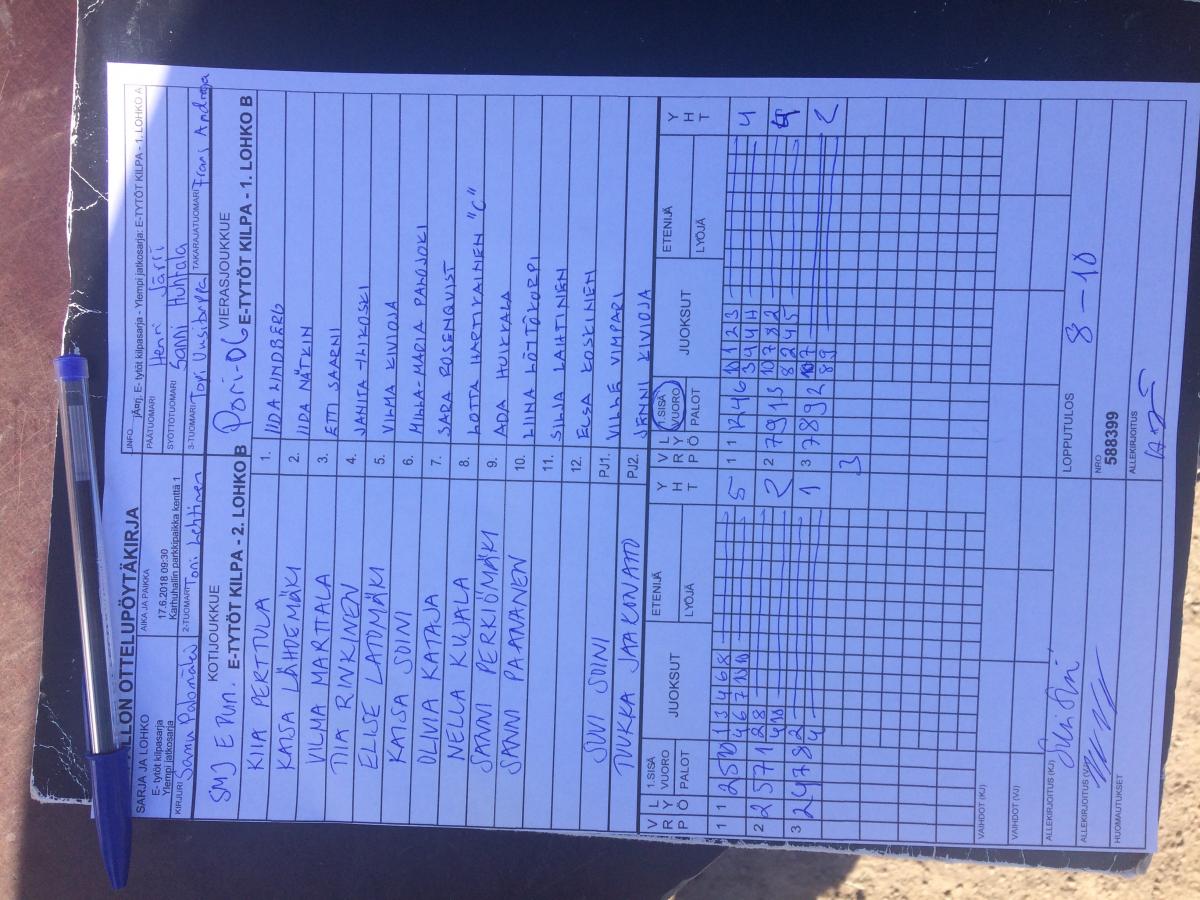 ALLON OTTELUPÖYTÄKIRJA
SARJA JA LOHKO
E- tytöt kilpasarja
Ylempi jatkosarja
AIKA JA PAIKKA
17.6.2018 09:30
Karhuhallin parkkipaikka kenttä 1
JNFO E- tytöt kilpasarja - Ylempi jatkosarja: E-TYTÖT KILPA - 1. LOHKO A
PÄÄTUOMARI Henri Järri
SYÖTTÖTUOMARI Sanni Huhtala
KIRJURI Samu Palomäki
2-TUOMARI Toni Lehtinen
3-TUOMARI Toni Uusihoppa
TAKARAJATUOMARI Frans Andreja
KOTIJOUKKUE
SMJ E Pun. E-TYTÖT KILPA - 2. LOHKO B
VIERASJOUKKUE
Pori-06 E-TYTÖT KILPA - 1. LOHKO B
KIIA PERTTULA 1. IIDA LINDBERG
KAISA LÄHDEMÄKI 2. IIDA NÄTKIN
VILMA MARTTALA 3. ETTI SAARNI
TIIA RINKINEN 4. JANITA YLIKOSKI
ELISE LATOMÄKI 5. VILMA KIVIOJA
KATJA SOINI 6. MILLA-MARIA PANOJOKI
OLIVIA KATAJA 7. SARA ROSENQVIST
NELLA KUJALA 8. LOTTA HARTIKAINEN "C"
SANNI PERKIÖMÄKI 9. ADA HUIKKALA
SANNI PAANANEN 10. LIINA LÖTTÖKORPI
11. SILJA LAHTINEN
12. ELSA KOSKINEN
SUVI SOINI PJ1. VILLE VIMPARI
JUKKA JAAKONAHO PJ2. JENNI KIVIOJA
V R P L Y Ö 1.SISÄ VUORO PALOT JUOKSUT ETENIJÄ LYÖJÄ Y H T
V R P L Y Ö 1.SISÄ VUORO PALOT JUOKSUT ETENIJÄ LYÖJÄ Y H T
1 1 2 5 10 1 3 4 6 8 5
4 6 7 10 10
2 2 5 7 1 2 8 2
4 10
3 2 4 7 8 2 1
4
1 1 2 4 6 10 1 2 3 4
3 4 4 4
2 7 9 1 5 10 7 8 2 4
8 2 4 5
3 7 8 9 2 10 7 2
8 9
3
VAIHDOT (KJ)
VAIHDOT (VJ)
ALLEKIRJOITUS (KJ) Suvi Soini
ALLEKIRJOITUS (VJ)
HUOMAUTUKSET
LOPPUTULOS 8 - 10
NRO
588399
ALLEKIRJOITUS